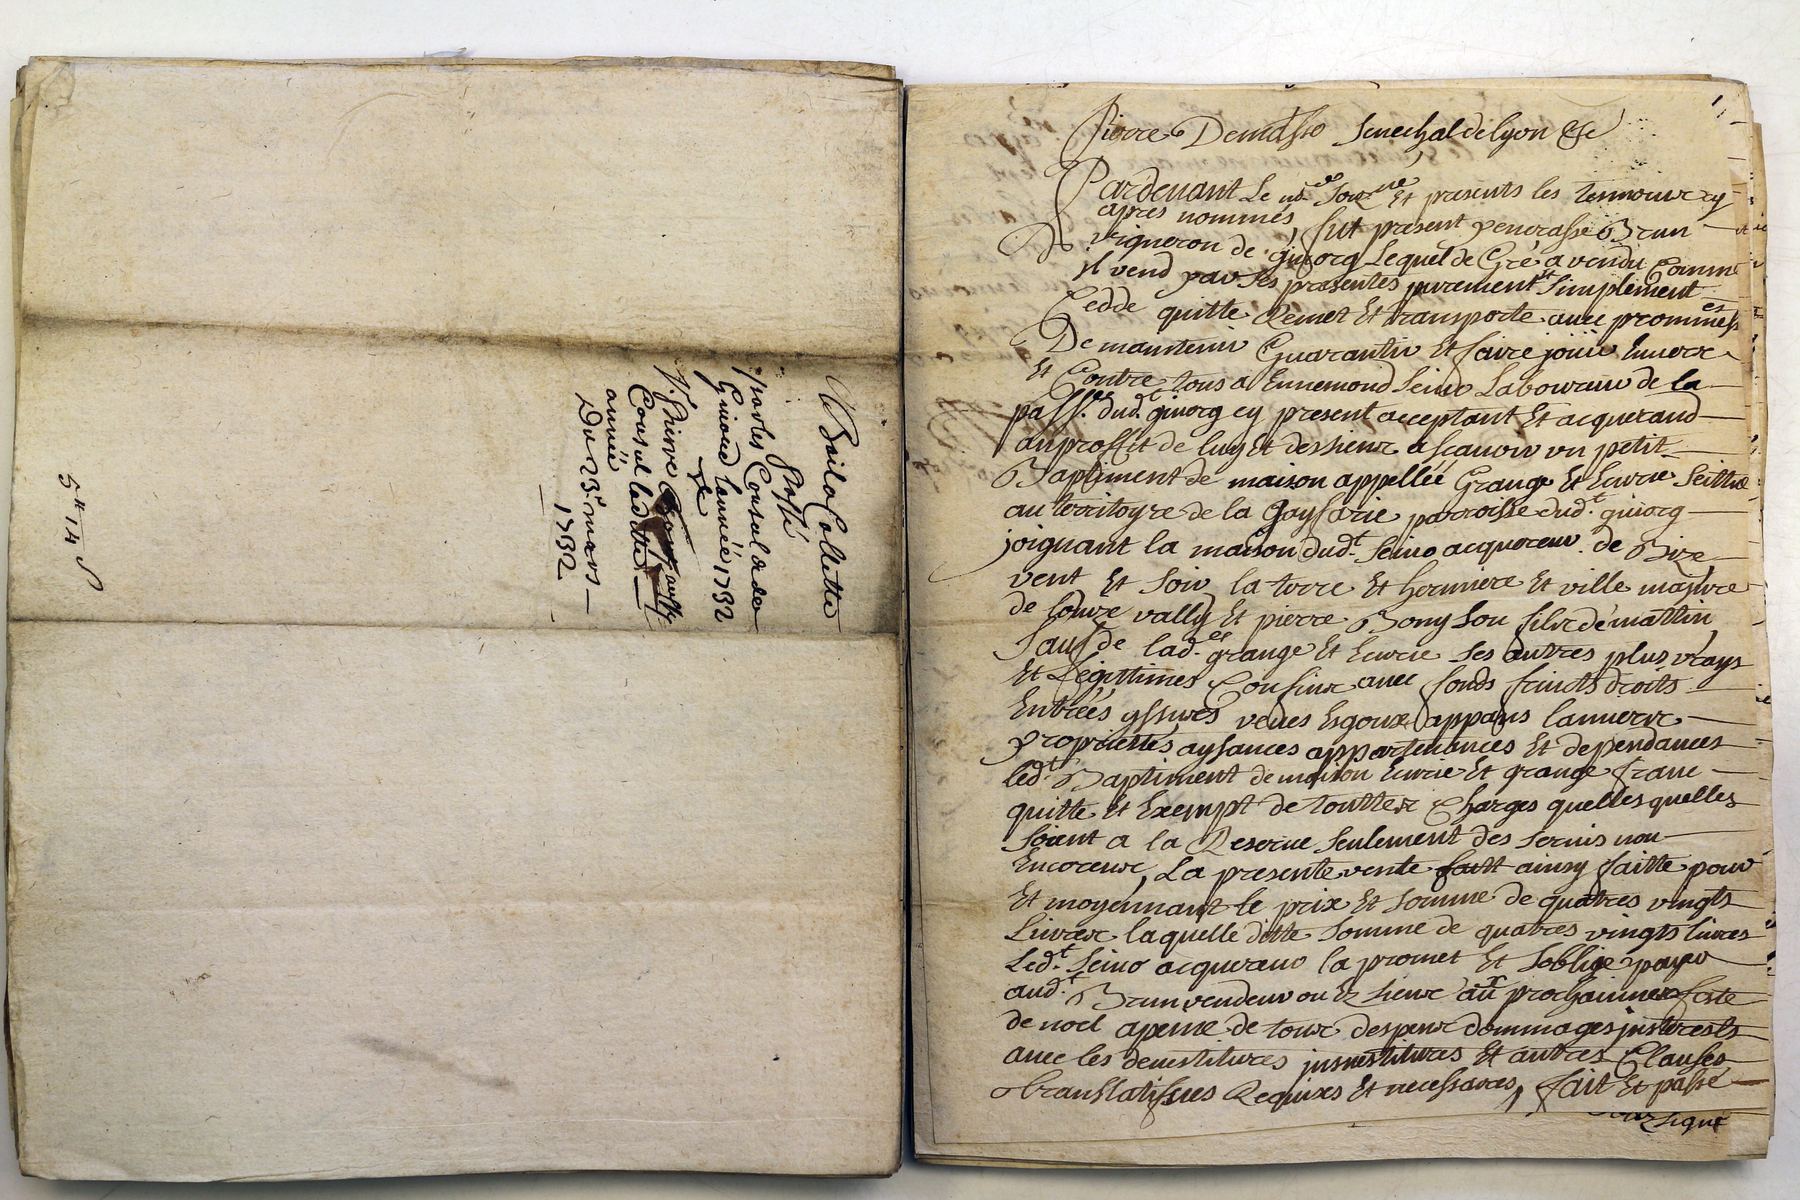 Bail a Collette
passé
par les Consul de
Giuord lannéé 1732
&
S.r Pierre
Consul ladtte
annéé
Du 23.e mars
1732
5 14 S
Pierre Demasso Senechal de lyon &c
Pardeuant Le nd.re Souz.né Et presents les temoinx cy
apres nommés, fut present yencasse Brun
vigneron de giuorg Lequel de Gré a vendu Comme
il vend par les presentes purement et Simplement
Cedde quitte Remet Et transporte auec prommesses
De maintenir Guarantir Et faire jouir Enuerx
Et Contre tous a Ennemond Seino Laboureur de la
pass.e dud.t giuorg cy present acceptant Et acquerand
au proffit de luy Et des siens a scauoir un petit
Baptiment de maison appelléé Grange Et Ecurie Scittue
au territoyre de la Gayfarie parroisse dud.t giuorg
joignant la maison dud.t Seino acquereur de Bize
vent Et Soir la terre Et hermiere Et ville mazure
de Louize vally Et pierre Bonyson filx de martin
Sauf de lad.es grange Et Ecurie Ses autres plus vrays
Et Legittimes Confinx auec fonds fruicts droits
Entréés yssues veues Esgoux appans lannerx
proprietés aysances appartenances Et dependances
led.t Baptiment de maison Ecurie Et grange franc
quitte Et Exempt de touttes Charges quelles quelles
Soient a la Reserue Seulement des seruis non
Encoreux, La presente vente ainsy faitte pour
Et moyennant le prix Et Somme de quatres vingts
Liures laquelle ditte Somme de quatres vingts liures
Led.t Seino acquereur la promet Et Soblige payer
aud.t Brun vendeur ou Ez siens aux prochaines feste
de noel apeine de tous despens dommages jnterests
auec les deuestitures jnuestitures Et autres Clauses
translatifues Requises Et necessaires, fait Et passé
Souzsigné